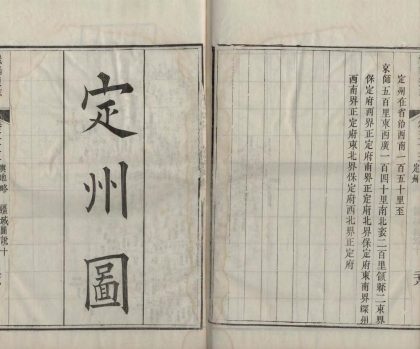 定州在省治西南一百五十里至
京師五百里東西廣一百四十里南北袤二百里領縣二東界
保定府西界正定府南界正定府北界保定府東南界深州
西南界正定府東北界保定府西北界正定府
定州圖
輿地略
疆域圖說十
定州